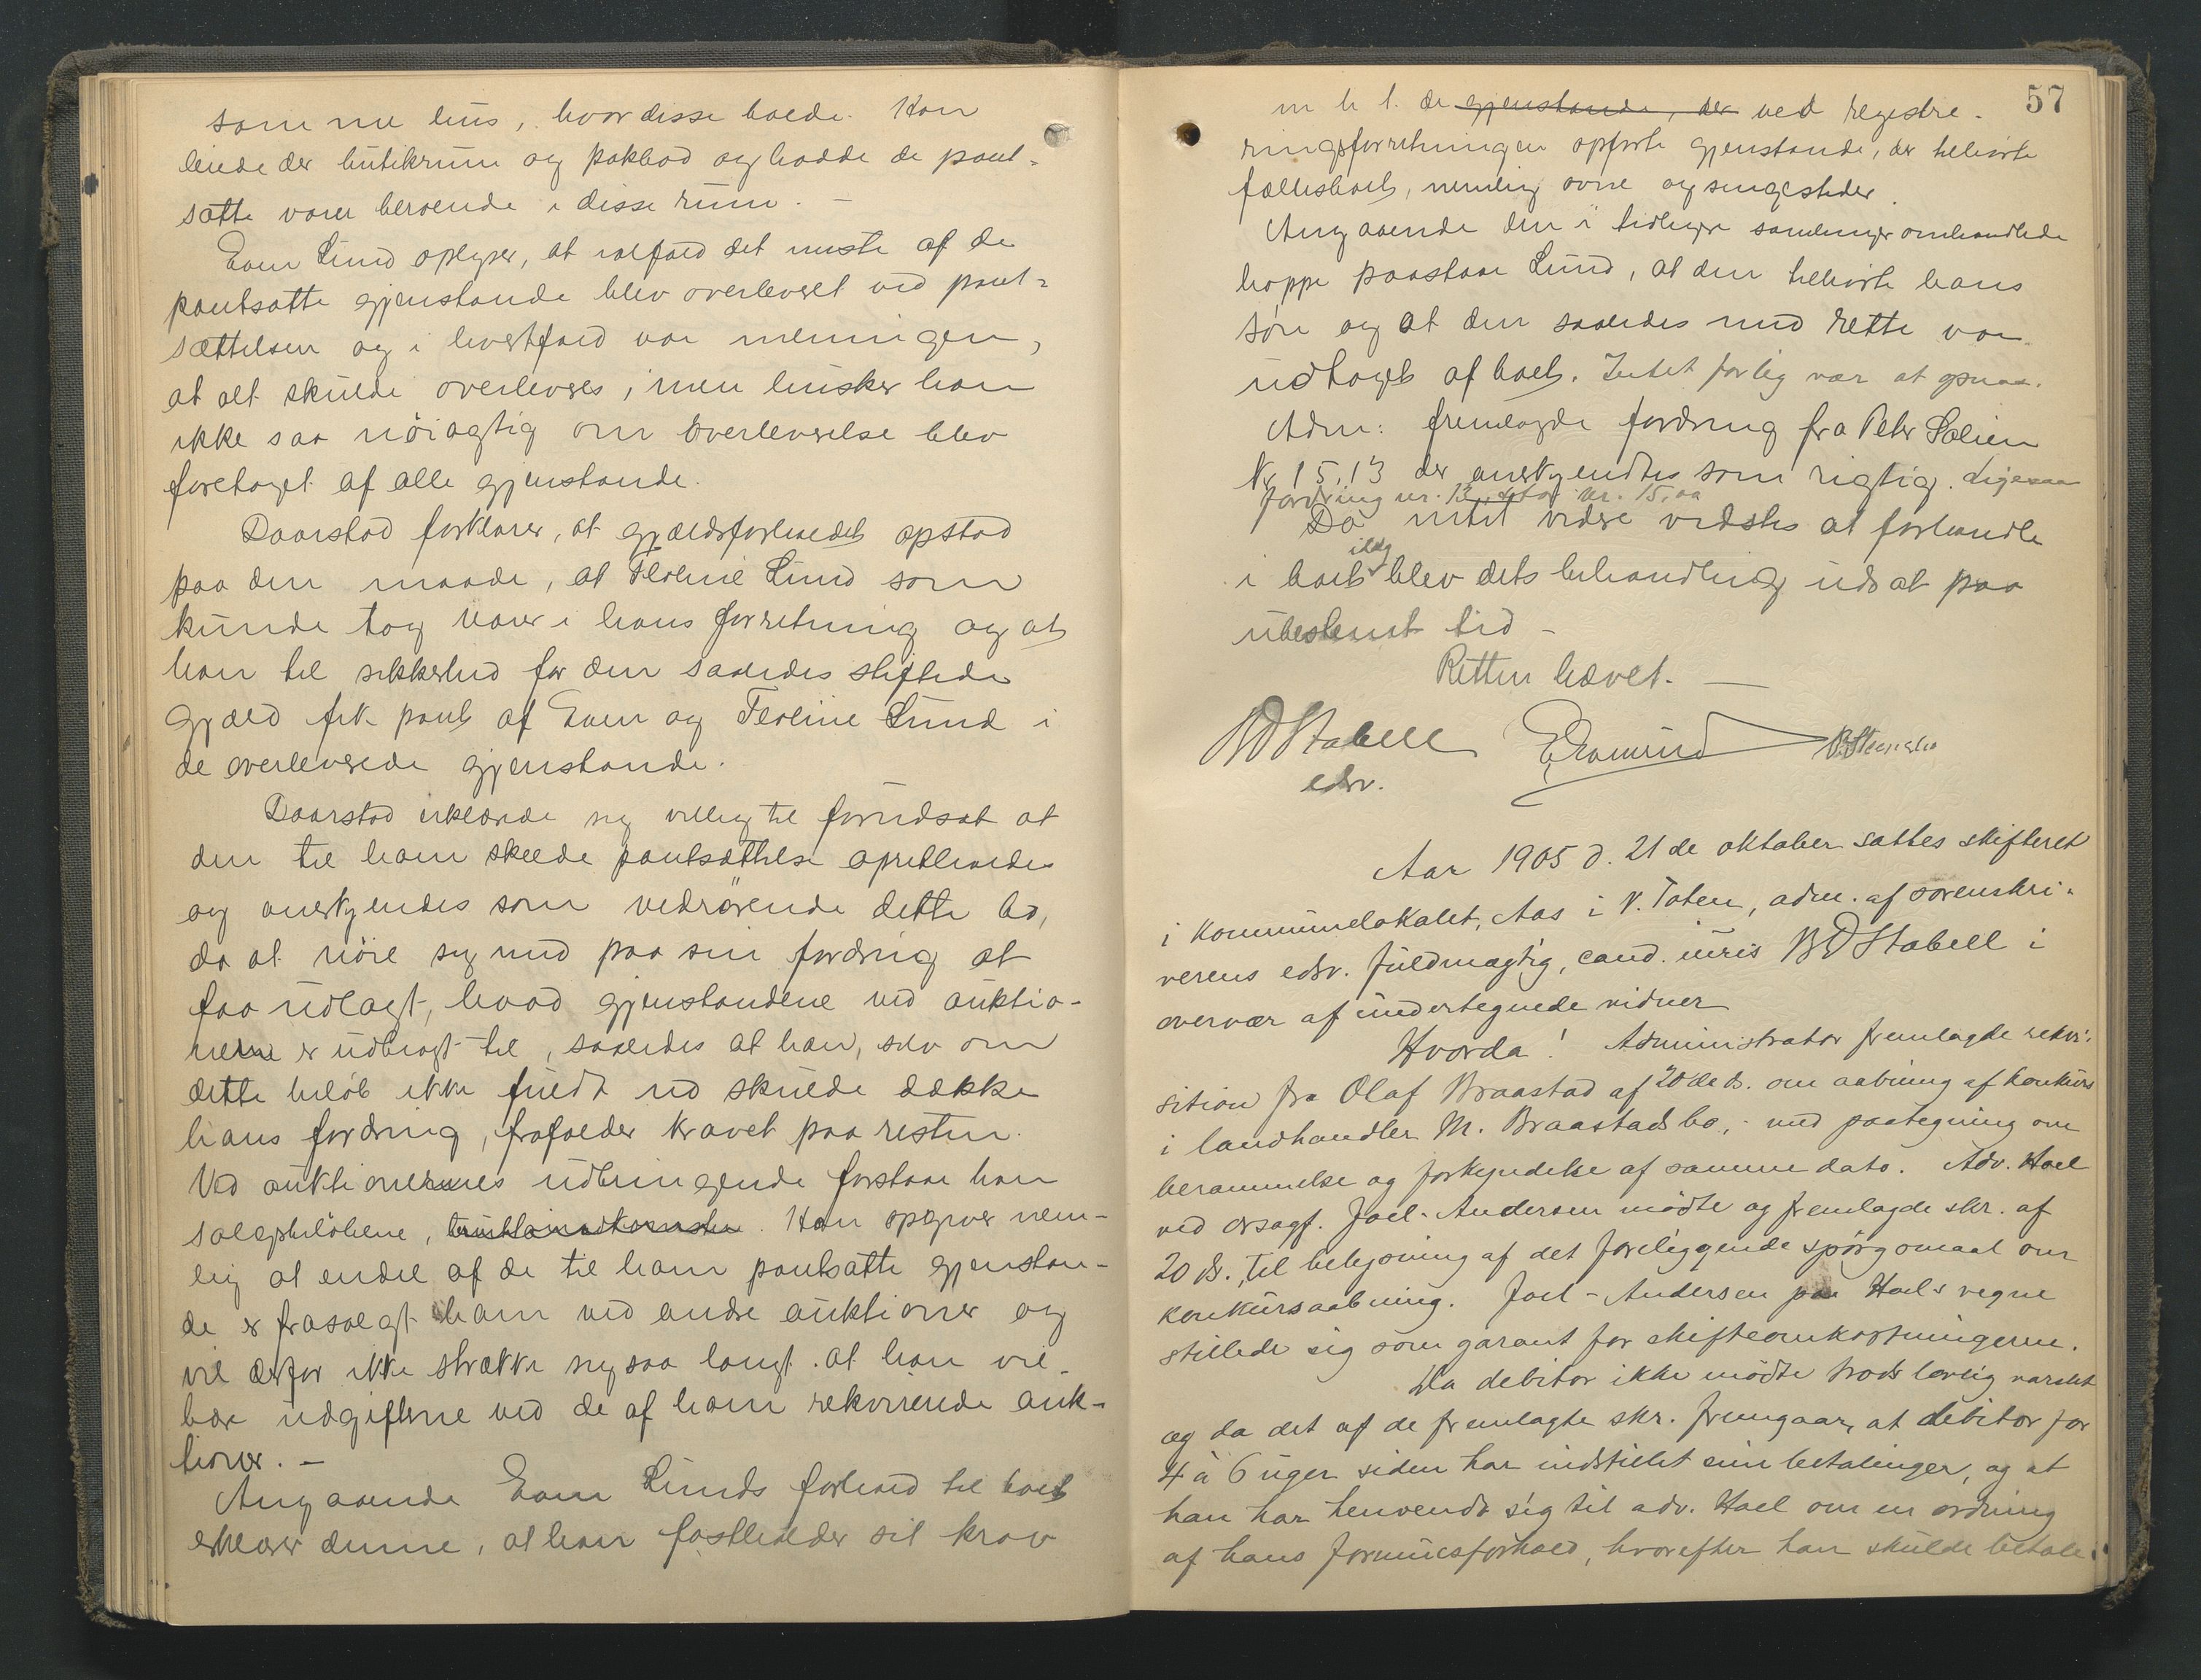 samme hus, hvor disse boede. Han
leiede der butikrum og pakbod og hadde de pant-
satte varer beroende i disse rum. –
Even Lund oplyser, at ialfald det meste af de
pantsatte gjenstande blev overleveret ved pant-
sættelsen og i hvertfald var meningen,
at alt skulde overleveres, men husker han
ikke saa nöiagtig om overleverelse blev
foretaget af alle gjenstande.
Daarstad forklarer, at gjældsforholdet opstod
paa den maade, at Theoline Lund som
kunde tog varer i hans forretning og at
han til sikkerhed for den saaledes stiftede
gjæld fik pant af Even og Theoline Lund i
de overleverede gjenstande.
Daarstad erklærede sig villig til forudsat at
den til ham skede pantsættelse opretholdes
og anerkjendes som vedrörende dette bo,
da at nöie sig med paa sin fordring at
faa udlagt, hvad gjenstandene ved auktio-
nerne er udbragt til, saaledes at han, selv om
dette belöb ikke fuldt ud skulde dække
hans fordring, frafalder kravet paa resten.
Ved auktionernes udbringende forstaar han
salgsbelöbene, . Han opgiver nem-
lig at endel af de til ham pantsatte gjenstan-
de er frasolgt ham ved andre auktioner og
vil derfor ikke strække sig saa langt at han vil
bære udgifterne ved de af ham rekvirerede auk-
tioner. –
Angaaende Even Lunds forhold til boet
erklærer denne, at han fastholder sit krav
57
m h t. de gjenstande, der ved registre-
ringsforretningen opförte gjenstande, der tilhörte
fællesboet, nemlig ovne og sengesteder.
Angaaende den i tidligere samlinger omhandlede
hoppe paastaar Lund, at den tilhörte hans
sön og at den saaledes med rette var
udtaget af boet. Intet forlig var at opnaa.
Adm: fremlagde fordring fra Peter
Kr 15,13 der anerkjendtes som rigtig. Ligesaa
fordring nr. 13, stor kr. 15,00
Da intet videre vidstes at forhandle
idag
i boet blev dets behandling udsat paa
ubestemt tid –
Retten hævet. –
BD Stabell
edsv.
Aar 1905 d. 21de oktober sattes skifteret
i kommunelokalet, Aas i V. Toten, adm. af sorenskri-
verens edsv. fuldmægtig, cand. iuris BD Stabell i
overvær af undertegnede vidner
Hvorda! Administrator fremlagde rekvi-
sition fra Olaf Braastad af 20de ds. om aabning af konkurs
i landhandler M. Braastads bo, med paategning om
berammelse og forkyndelse af samme dato. Adv. Hoel
ved orsagf. Joel-Andersen mödte og fremlagde skr. af
20 ds. til belysning af det foreliggende spörgsmaal om
konkursaabning. Joel-Andersen paa Hoels vegne
stillede sig som garant for skifteomkostningerne.
Da debitor ikke mödte trods lovlig varslet
og da det af de fremlagte skr. fremgaar, at debitor for
4 à 6 uger siden har indstillet sine betalinger, og at
han har henvendt sig til adv. Hoel om en ordning
af hans formuesforhold, hvorefter han skulde betale